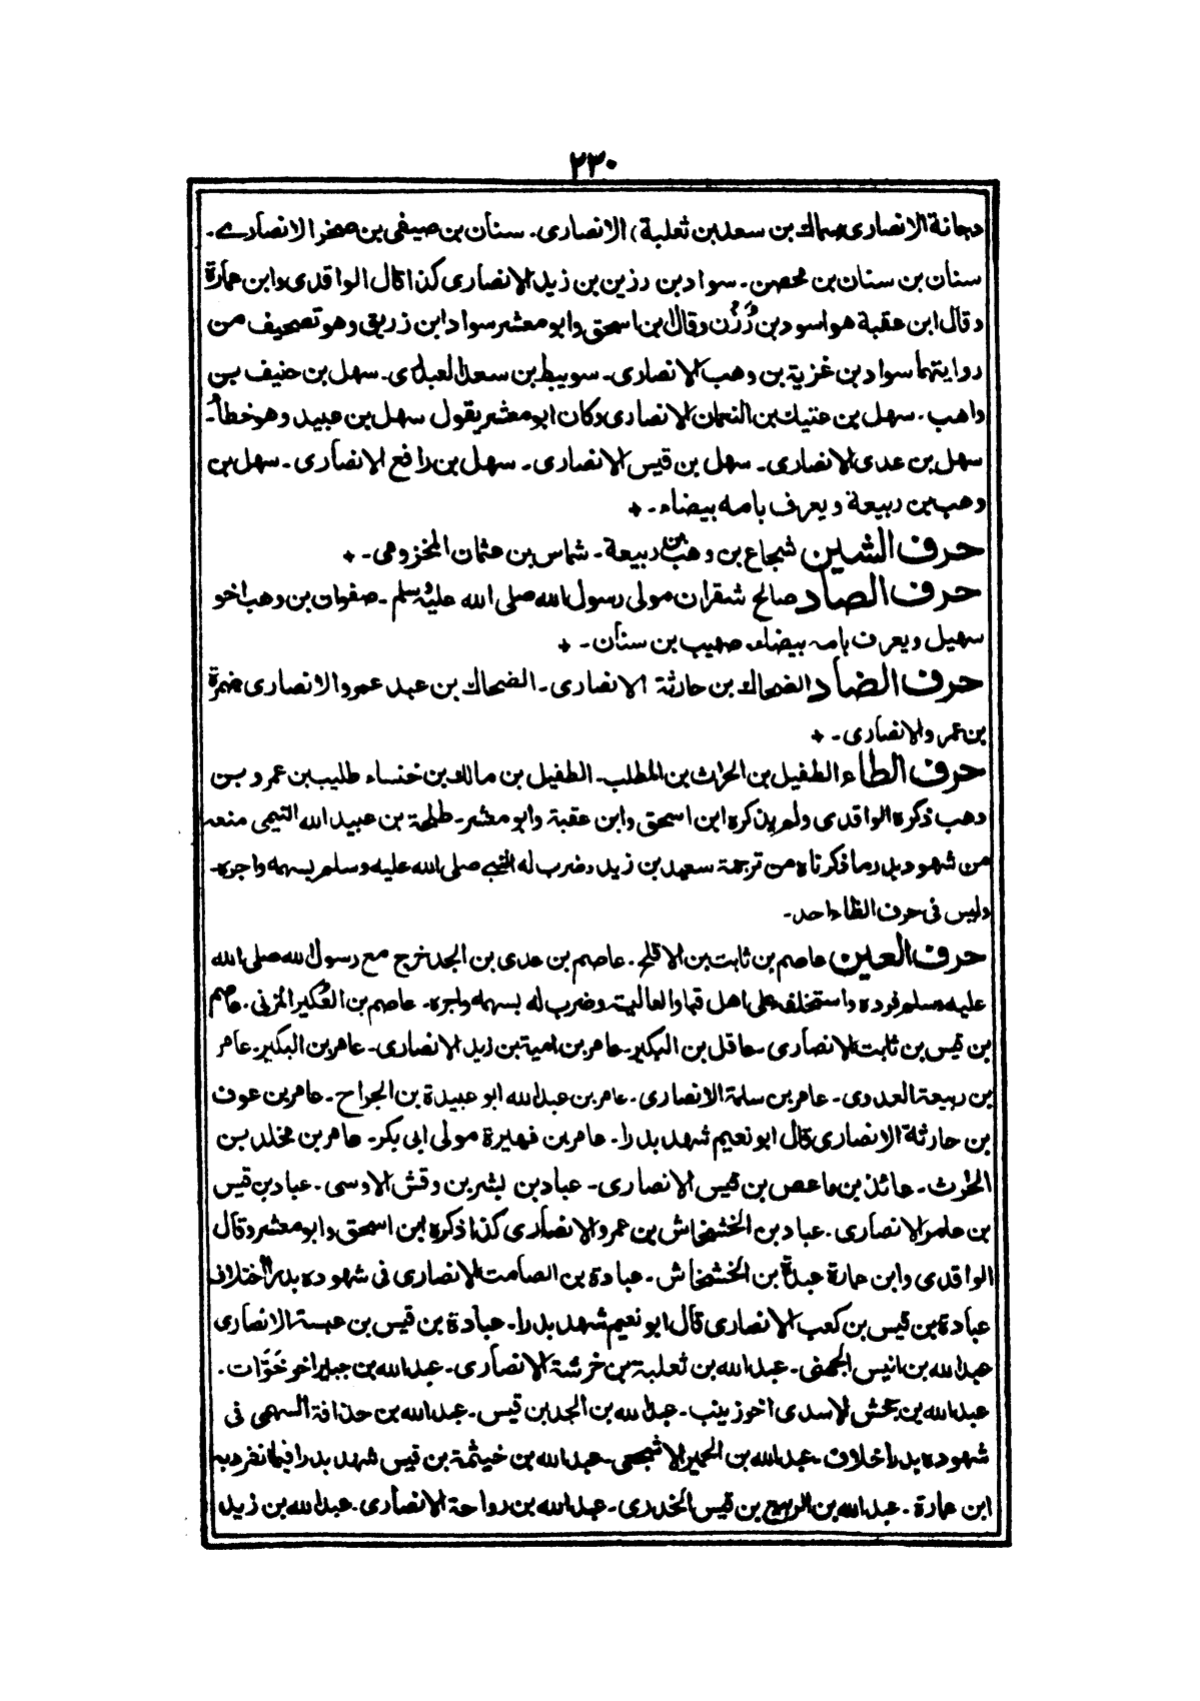 ٢٣٠
دجانة الانصاری سماك بن سعد بن ثعلبة الانصاری۔ سنان بن صیفی بن صخر الانصارے۔
سنان بن سنان بن محصن۔ سواد بن رزین بن زید الانصاری کذا قال الواقدی وابن عمارة
وقال ابن عقبة هو اسود بن رُزْن وقال ابن اسحق وابو معشر سواد ابن زریق وهو تصحیف من
روایتهما سواد بن غزیة بن وهب الانصاری۔ سویبط بن سعد العبدری۔ سهل بن حنیف بن
واهب۔ سهل بن عتیك بن النعمان الانصاری وکان ابو معشر یقول سهل بن عبید وهو خطأ۔
سهل بن عدی الانصاری۔ سهل بن قیس الانصاری۔ سهل بن رافع الانصاری۔ سهل بن
وهب بن ربیعة ویعرف بامه بیضاء۔
حرف الشین شجاع بن وهب بن ربیعة۔ شماس بن عثمان المخزومی۔
حرف الصاد صالح شقران مولی رسول الله صلی الله علیه وسلم۔ صفوان بن وهب اخو
سهیل ویعرف بامه بیضاء۔ صهیب بن سنان۔
حرف الضاد الضحاك بن حارثة الانصاری۔ الضحاك بن عبد عمرو الانصاری ضمرة
بن عمرو الانصاری۔
حرف الطاء الطفیل بن الحرث بن المطلب۔ الطفیل بن مالك بن خنساء طلیب بن عمرو بن
وهب ذکره الواقدی ولم یذکره ابن اسحق وابن عقبة وابو معشر۔ طلحة بن عبید الله التیمی منعه
من شهود بدر ما ذکرناه من ترجمة سعید بن زید وضرب له النبی صلی الله علیه وسلم بسهمه واجره۔
ولیس فی حرف الظاء احد۔
حرف العین عاصم بن ثابت بن الاقلح۔ عاصم بن عدی بن الجد خرج مع رسول الله صلی الله
علیه وسلم فرده واستخلفه علی اهل قبا والعالیة وضرب له بسهمه واجره۔ عاصم بن العُکیر المزنی۔ عاصم
بن قیس بن ثابت الانصاری۔ عاقل بن البکیر۔ عامر بن امیة بن زید الانصاری۔ عامر بن البکیر۔ عامر
بن ربیعة العدوی۔ عامر بن سلمة الانصاری۔ عامر بن عبد الله ابو عبیدة بن الجراح۔ عامر بن عوف
بن حارثة الانصاری قال ابو نعیم شهد بدرا۔ عامر بن فهیرة مولی ابی بکر۔ عامر بن مخلد بن
الحرث۔ عائذ بن ماعص بن قیس الانصاری۔ عباد بن بشر بن وقش الاوسی۔ عباد بن قیس
بن عامر الانصاری۔ عباد بن الخشخاش بن عمرو الانصاری کذا ذکره ابن اسحق وابو معشر وقال
الواقدی وابن عمارة عبدة بن الخشخاش۔ عبادة بن الصامت الانصاری فی شهوده بدرا اختلاف
عبادة بن قیس بن کعب الانصاری قال ابو نعیم شهد بدرا۔ عبادة بن قیس بن عبسة الانصاری
عبد الله بن انیس الجهنی۔ عبد الله بن ثعلبة بن خرشة الانصاری۔ عبد الله بن جبیر اخو خَوَّات۔
عبد الله بن جحش الاسدی اخو زینب۔ عبد الله بن الجد بن قیس۔ عبد الله بن حذافة السهمی فی
شهوده بدرا خلاف۔ عبد الله بن الحمیر الاشجعی۔ عبد الله بن خیثمة بن قیس شهد بدرا فیما تفرد به
ابن عمارة۔ عبد الله بن الربیع بن قیس الخدری۔ عبد الله بن رواحة الانصاری۔ عبد الله بن زید